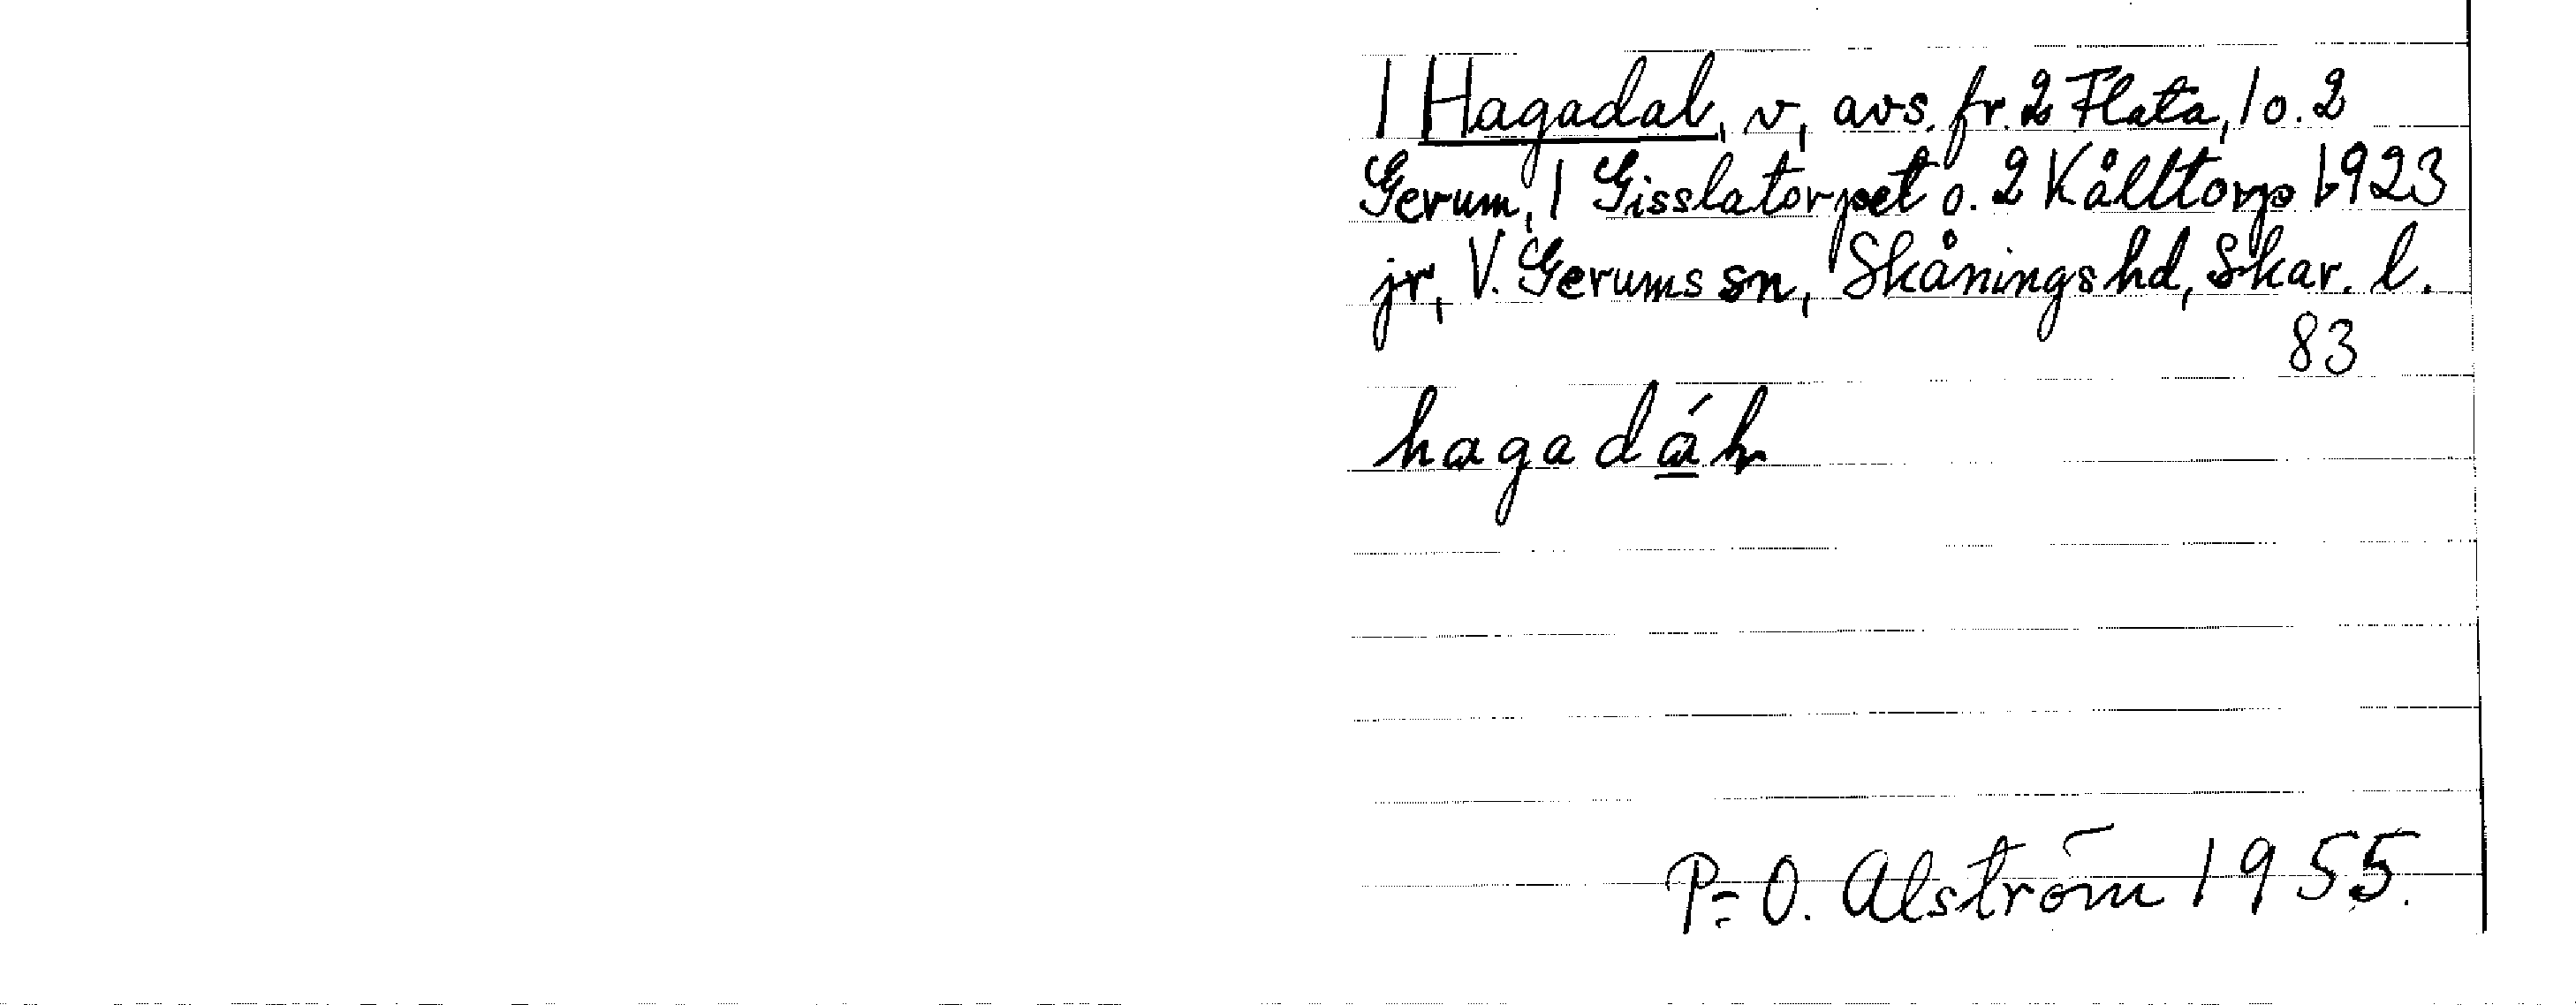 1 Hagadal, v, avs. fr. 2 Flata, 1 o. 2
Gerum, 1 Gisslatorpet o. 2 Kålltorp 1923
jr, V. Gerums sn, Skånings hd, Skar. l.
83
hagadáh
P=O. Alström 1955.